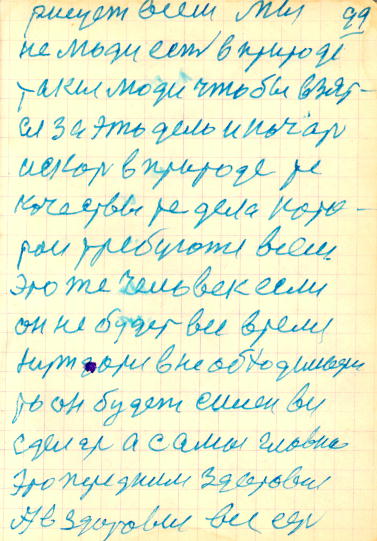 рисует всем Мы 99
не люди есть в природе
такие люди чтобы взят-
ся за это дело и начар
искар в природе те
качествы те дела кото-
рои требуюжи всем
это же человек если
он не будет все время
в необходимости
то он будет силен ви
сделар а самы главна
Это передним здоровия
А в здоровии все